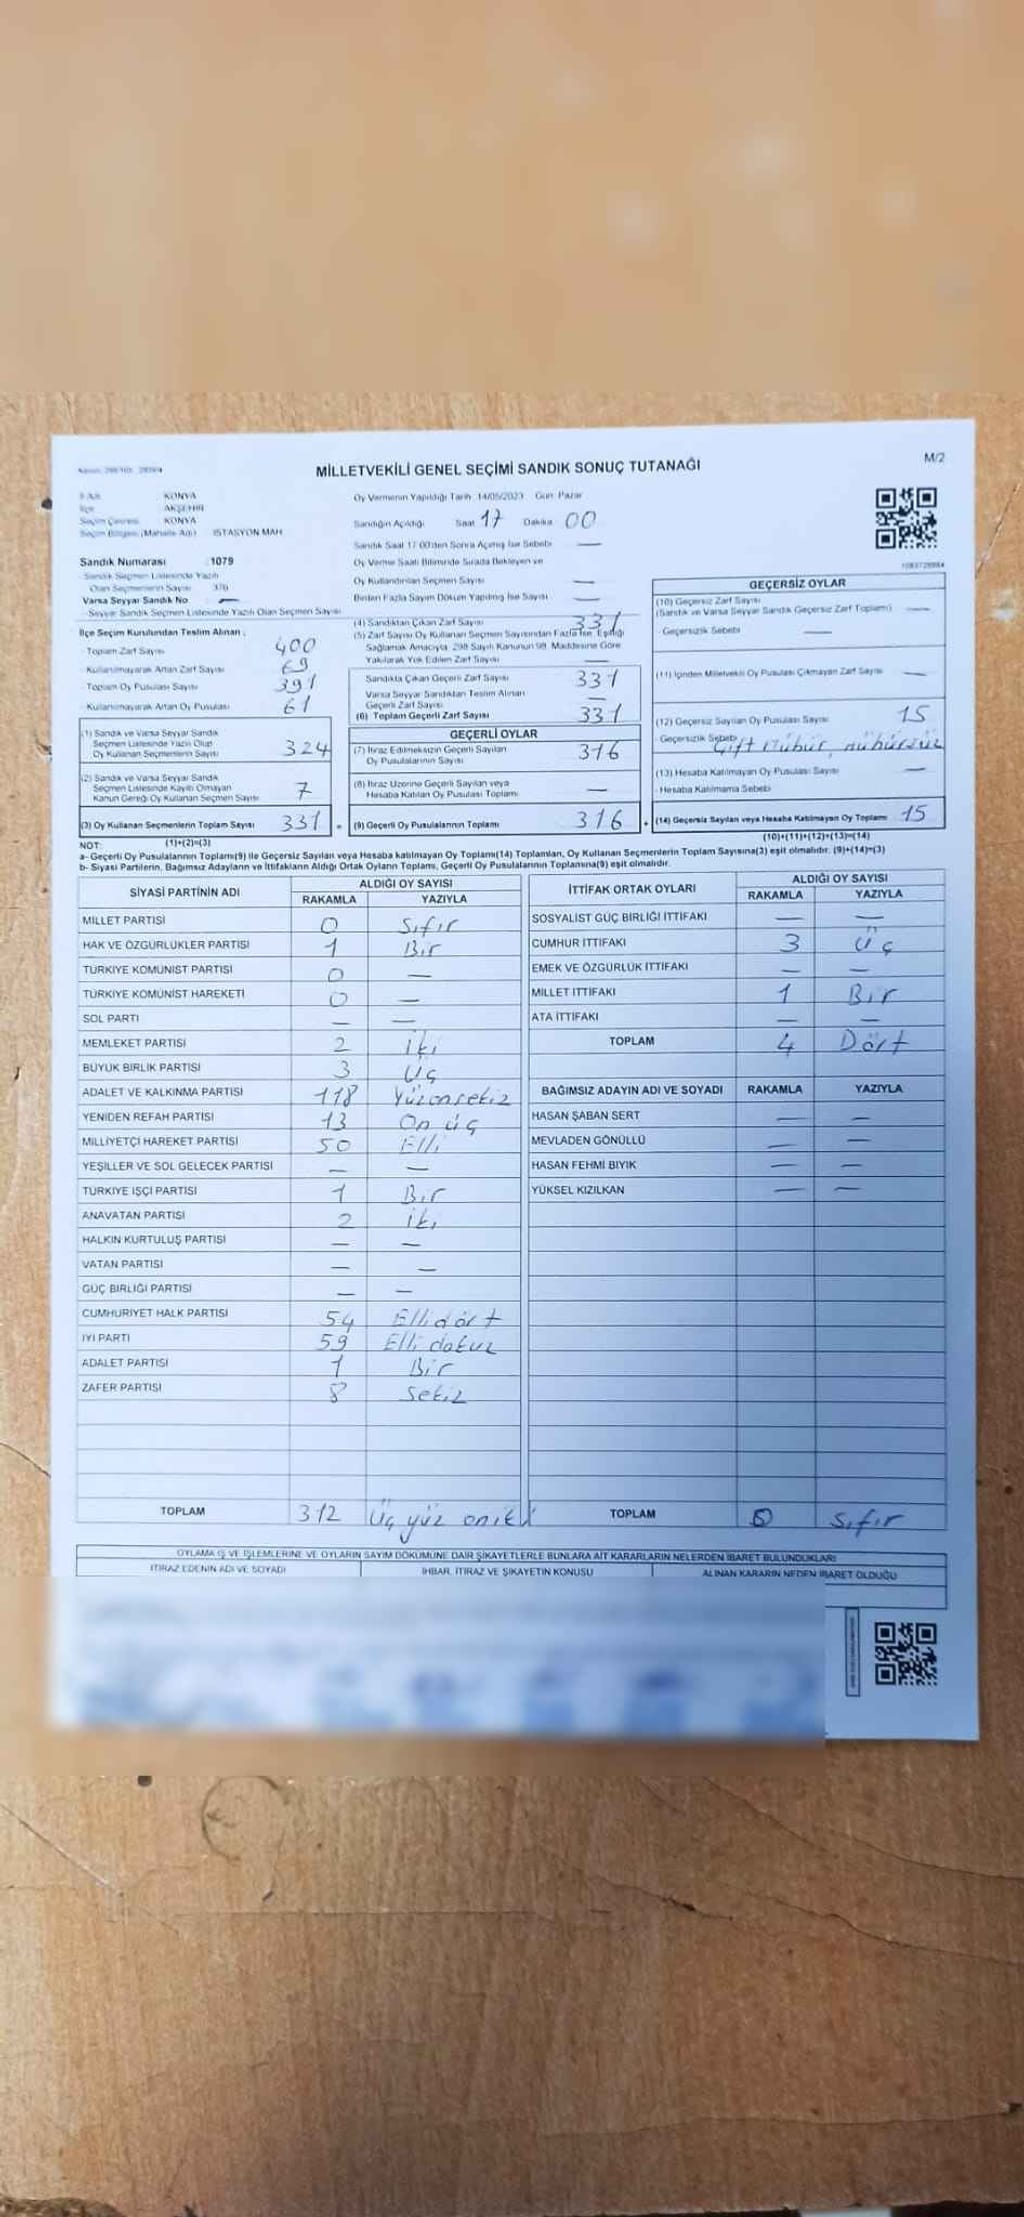 MİLLETVEKİLİ GENEL SEÇİMİ SANDIK SONUÇ TUTANAĞI
M/2
KONYA
AKŞEHİR
Seçim Çevresi KONYA
Seçim Bölgesi (Mahalle Adı) İSTASYON MAH
Oy Vermenin Yapıldığı Tarih 14/05/2023 Gün Pazar
Sandığın Açıldığı Saat 17 Dakika 00
Sandık Saat 17:00'den Sonra Açılmış İse Sebebi —
Sandık Numarası 1079
Sandık Seçmen Listesinde Yazılı
Olan Seçmenlerin Sayısı 376
Varsa Seyyar Sandık No —
Seyyar Sandık Seçmen Listesinde Yazılı Olan Seçmen Sayısı
Oy Verme Saati Bitiminde Sırada Bekleyen ve
Oy Kullandırılan Seçmen Sayısı —
Birden Fazla Sayım Döküm Yapılmış İse Sayısı —
İlçe Seçim Kurulundan Teslim Alınan ;
Toplam Zarf Sayısı 400
Kullanılmayarak Artan Zarf Sayısı 69
Toplam Oy Pusulası Sayısı 391
Kullanılmayarak Artan Oy Pusulası 61
(1) Sandık ve Varsa Seyyar Sandık
Seçmen Listesinde Yazılı Olup
Oy Kullanan Seçmenlerin Sayısı 324
(2) Sandık ve Varsa Seyyar Sandık
Seçmen Listesinde Kayıtlı Olmayan
Kanun Gereği Oy Kullanan Seçmen Sayısı 7
(3) Oy Kullanan Seçmenlerin Toplam Sayısı 331
(4) Sandıktan Çıkan Zarf Sayısı 331
(5) Zarf Sayısı Oy Kullanan Seçmen Sayısından Fazla İse, Eşitliği
Sağlamak Amacıyla 298 Sayılı Kanunun 98. Maddesine Göre
Yakılarak Yok Edilen Zarf Sayısı —
Sandıkta Çıkan Geçerli Zarf Sayısı 331
Varsa Seyyar Sandıktan Teslim Alınan
Geçerli Zarf Sayısı —
(6) Toplam Geçerli Zarf Sayısı 331
GEÇERLİ OYLAR
(7) İtiraz Edilmeksizin Geçerli Sayılan
Oy Pusulalarının Sayısı 316
(8) İtiraz Üzerine Geçerli Sayılan veya
Hesaba Katılan Oy Pusulası Toplamı —
(9) Geçerli Oy Pusulalarının Toplamı 316
GEÇERSİZ OYLAR
(10) Geçersiz Zarf Sayısı
(Sandık ve Varsa Seyyar Sandık Geçersiz Zarf Toplamı) —
Geçersizlik Sebebi —
(11) İçinden Milletvekili Oy Pusulası Çıkmayan Zarf Sayısı —
(12) Geçersiz Sayılan Oy Pusulası Sayısı 15
Geçersizlik Sebebi Çift Mühür, mühürsüz
(13) Hesaba Katılmayan Oy Pusulası Sayısı —
Hesaba Katılmama Sebebi
(14) Geçersiz Sayılan veya Hesaba Katılmayan Oy Toplamı 15
NOT: (1)+(2)=(3) (10)+(11)+(12)+(13)=(14)
a- Geçerli Oy Pusulalarının Toplamı(9) ile Geçersiz Sayılan veya Hesaba katılmayan Oy Toplamı(14) Toplamları, Oy Kullanan Seçmenlerin Toplam Sayısına(3) eşit olmalıdır. (9)+(14)=(3)
b- Siyasi Partilerin, Bağımsız Adayların ve İttifakların Aldığı Ortak Oyların Toplamı, Geçerli Oy Pusulalarının Toplamına(9) eşit olmalıdır.
SİYASİ PARTİNİN ADI ALDIĞI OY SAYISI
RAKAMLA YAZIYLA
MİLLET PARTİSİ 0 Sıfır
HAK VE ÖZGÜRLÜKLER PARTİSİ 1 Bir
TÜRKİYE KOMÜNİST PARTİSİ 0 —
TÜRKİYE KOMÜNİST HAREKETİ 0 —
SOL PARTİ — —
MEMLEKET PARTİSİ 2 iki
BÜYÜK BİRLİK PARTİSİ 3 Üç
ADALET VE KALKINMA PARTİSİ 118 Yüzonsekiz
YENİDEN REFAH PARTİSİ 13 On üç
MİLLİYETÇİ HAREKET PARTİSİ 50 Elli
YEŞİLLER VE SOL GELECEK PARTİSİ — —
TÜRKİYE İŞÇİ PARTİSİ 1 Bir
ANAVATAN PARTİSİ 2 iki
HALKIN KURTULUŞ PARTİSİ — —
VATAN PARTİSİ — —
GÜÇ BİRLİĞİ PARTİSİ — —
CUMHURİYET HALK PARTİSİ 54 Elli dört
İYİ PARTİ 59 Elli dokuz
ADALET PARTİSİ 1 Bir
ZAFER PARTİSİ 8 Sekiz
TOPLAM 312 Üç yüz oniki
İTTİFAK ORTAK OYLARI ALDIĞI OY SAYISI
RAKAMLA YAZIYLA
SOSYALİST GÜÇ BİRLİĞİ İTTİFAKI — —
CUMHUR İTTİFAKI 3 Üç
EMEK VE ÖZGÜRLÜK İTTİFAKI — —
MİLLET İTTİFAKI 1 Bir
ATA İTTİFAKI — —
TOPLAM 4 Dört
BAĞIMSIZ ADAYIN ADI VE SOYADI RAKAMLA YAZIYLA
HASAN ŞABAN SERT — —
MEVLADEN GÖNÜLLÜ — —
HASAN FEHMİ BIYIK — —
YÜKSEL KIZILKAN — —
TOPLAM 0 Sıfır
OYLAMA İŞ VE İŞLEMLERİNE VE OYLARIN SAYIM DÖKÜMÜNE DAİR ŞİKAYETLERLE BUNLARA AİT KARARLARIN NELERDEN İBARET BULUNDUKLARI
İTİRAZ EDENİN ADI VE SOYADI İHBAR, İTİRAZ VE ŞİKAYETİN KONUSU ALINAN KARARIN NEDEN İBARET OLDUĞU